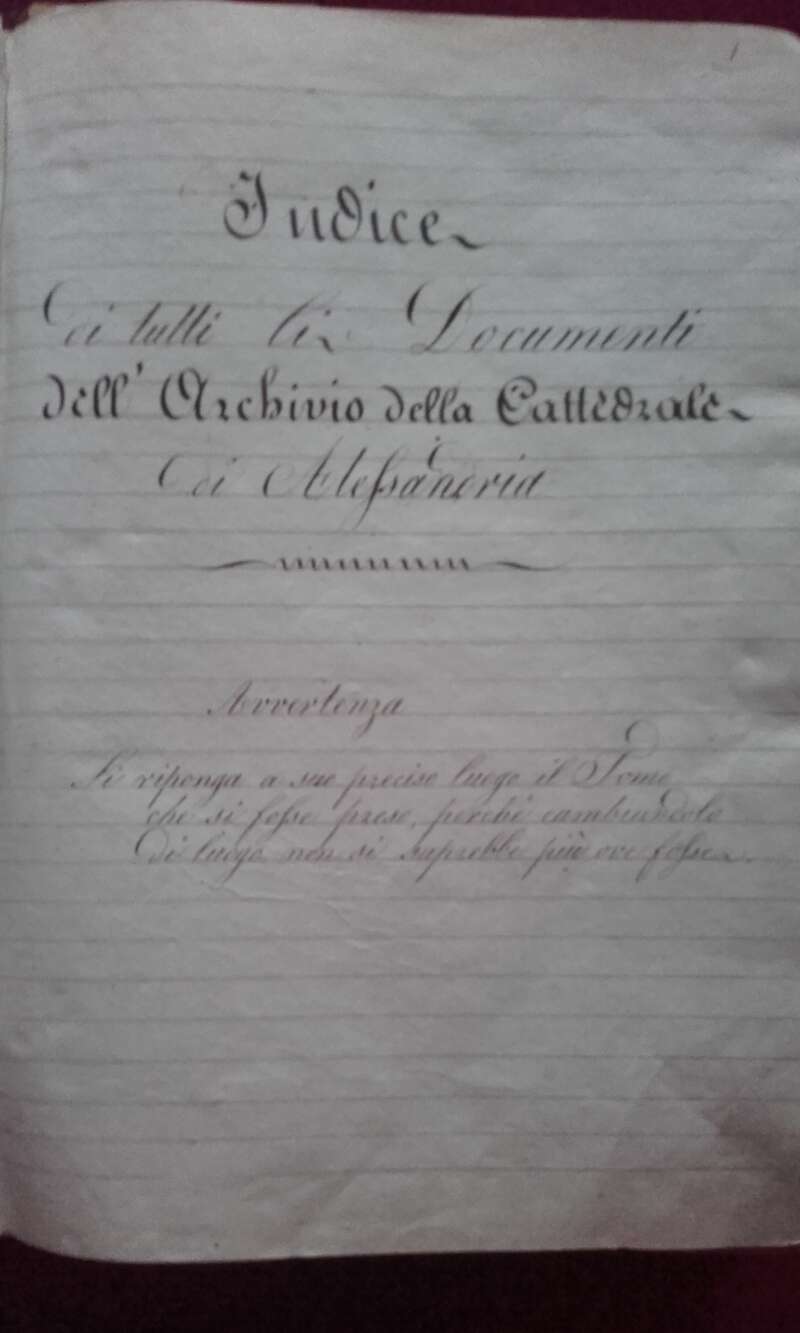 1
Indice
di tutti li Documenti
dell' Archivio della Cattedrale
di Alessandria
Avvertenza
Si riponga a suo preciso luogo il Tomo
che si fosse preso, perchè cambiandolo
di luogo non si saprebbe più ove fosse.